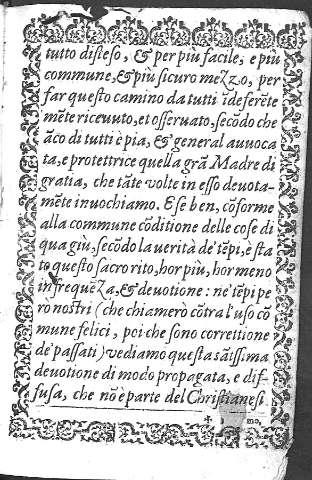 tutto disteso, & per più facile, e più
commune, & più sicuro mezzo, per
far questo camino da tutti ĩdeferẽte
mẽte riceuuto, et osseruato, secõdo che
ãco di tutti è pia, & general auuoca
ta, e protettrice quella grã Madre di
gratia, che tãte volte in esso deuota-
mẽte inuochiamo. E se ben, cõforme
alla commune cõditione delle cose di
qua giù, secõdo la uerità de' tẽpi, è sta
to questo sacro rito, hor più, hor meno
in frequẽza, & deuotione: ne' tẽpi pe
ro nostri (che chiamerò cõtra l'uso cõ
mune felici, poi che sono correttione
de' passati) vediamo questa sãtissima
deuotione di modo propagata, e dif-
fusa, che nõ è parte del Christianesi
mo,